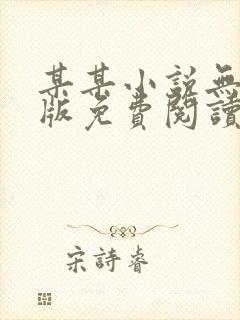 某某小說無
版免費閱讀
宋詩睿